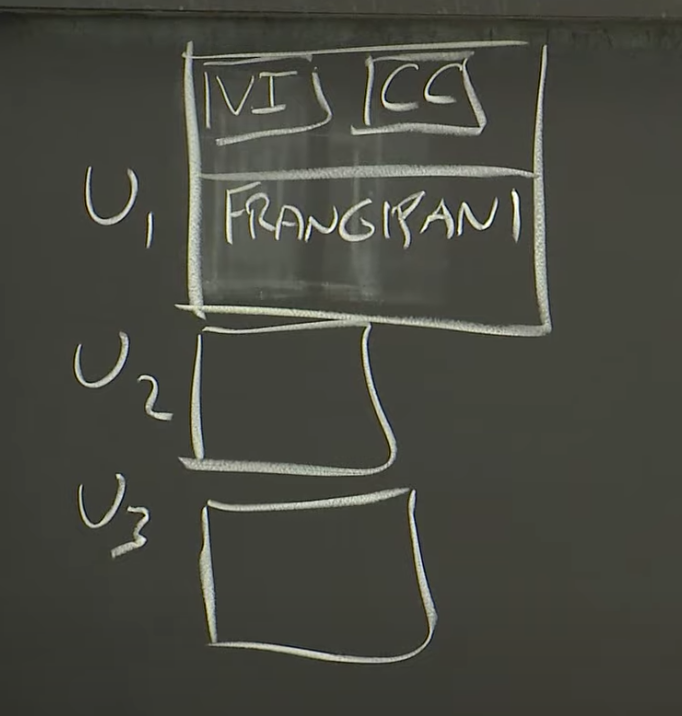 VI CC
U1 FRANGIPANI
U2
U3